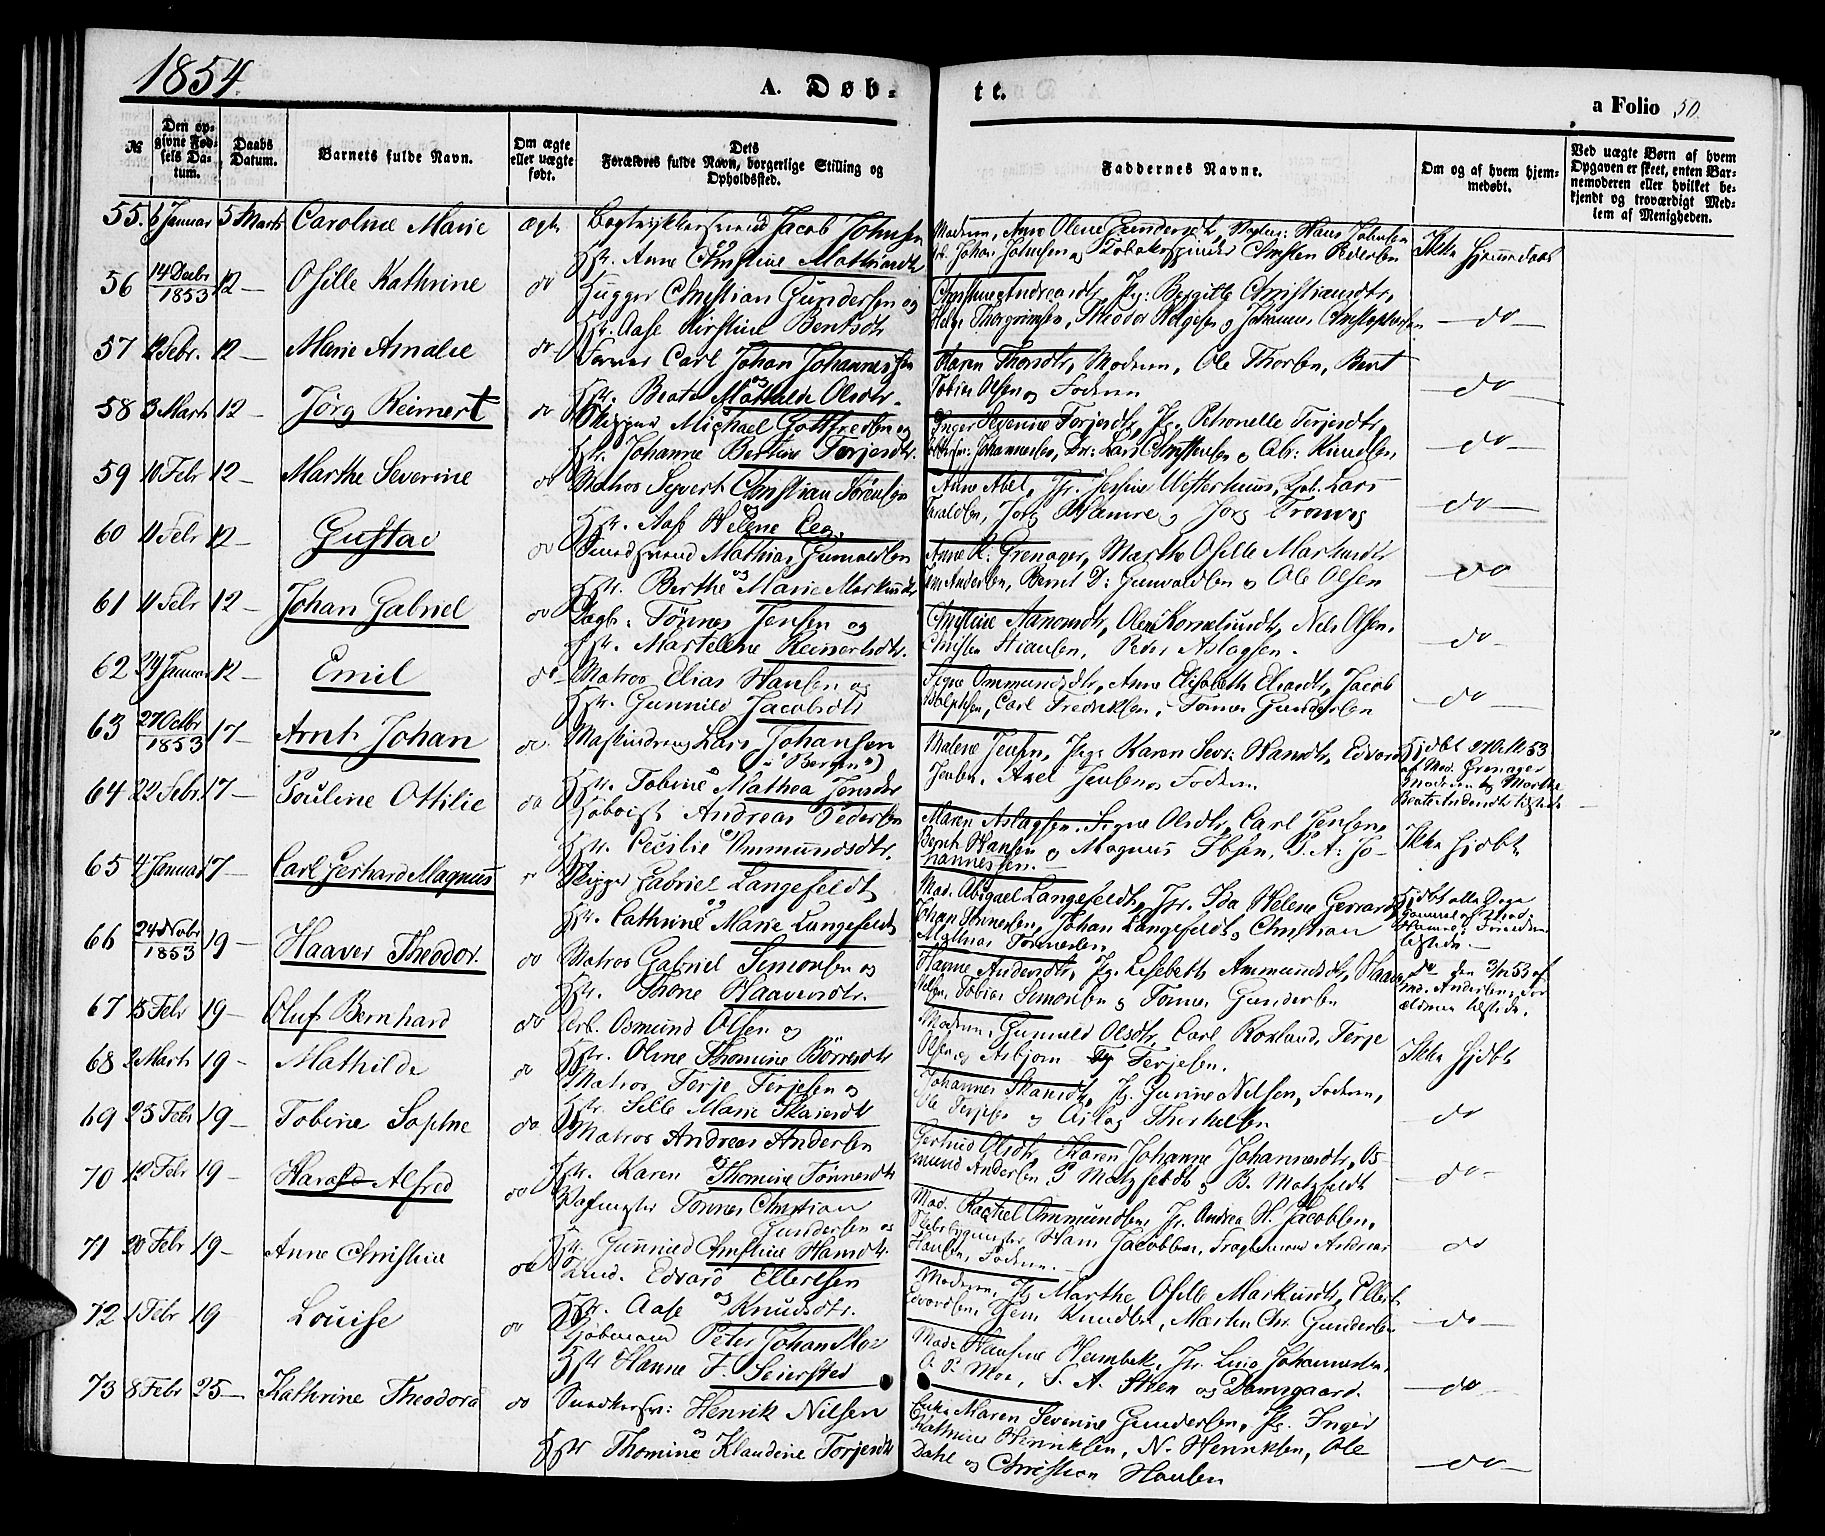 1854.
A. Døb-
tt.
a Folio 50.
№
Den op-
givne Fød-
sels Da-
tum.
Daabs
Datum.
Barnets fulde Navn.
Om ægte
eller uægte
født.
Dets
Forældres fulde Navn, borgerlige Stilling og
Opholdssted.
Faddernes Navne.
Om og af hvem hjem-
medøbt.
Ved uægte Børn af hvem
Opgaven er skeet, enten Bar-
nemoderen eller hvilket be-
kjendt og troværdigt Med-
lem af Menigheden.
55. 6 Januar 5 Marts Caroline Marie ægte Bogtrykkersvend Jacob Johnsen
Hstr. Anne Christine
Moderen, Anne Olene Gundersdt, Hans Johnsen
Johan Johnsen og Tobaksspinder Christen Pedersen
Ikke hjemmedøbt
56 14 Decbr 1853 12 — Osille Kathrine do Hugger Christian Gundersen og
Hstr. Aase Kirstine Bentsdtr
Pg: Bergitte Christiansdtr,
Helge Thorgrimsen, Theodor Helgesen og Johannes Christophersen
— do —
57 12 Febr. 12 — Marie Amalie do Carl Johan Johannessen
og
Hstr. Beate Mathilde Olsdtr.
Karen Thorsdtr, Moderen, Ole Thorsen, Bent
Tobias Olsen og Faderen
do
58 3 Marts 12 — Jörg Reimert do Skipper Michael Gottfredsen og
Hstr. Johanne Bertine Terjesdtr.
Inger Severine Torjesdtr, Pg. Petronelle Terjesdtr,
Johannesen, Lars Christensen og Abr: Knudsen
— do —
59 10 Febr 12 — Marthe Severine do Matros Sigvert Christian Sørensen
og
Hstr. Aase Helene Eeg.
Anne Abel, Jfr. Jessine Westerhuus, Lars
do —
60 11 Febr 12 — Gustav do Smedsvend Mathias Gunvaldsen
og
Hstr. Berthe Marie Markusdt
Anne K. Grenager, Marthe Osille Markusdt
Andersen, Bernt D: Gunvaldsen og Ole Olsen
— do
61 11 Febr 12 — Johan Gabriel do Dagl. Tönnes Jensen og
Hstr. Martelene Reinertsdtr.
Christine Aanonsdtr, Olene Kornelundtr, Nils Olsen.
Christen Peder Aslagsen.
— do —
62 24 Januar 12 — Emil do Matros Elias Hansen og
Hstr. Gunnild Jacobsdtr
Signe Ommundsdtr, Anne Elisabeth Eliasdtr, Jacob
Carl Fredriksen, Tönnes Gundersen
— do —
63 27 Octbr 1853 17 — Arnt Johan do. Lars Johansen
(Bergen)
Hstr. Tobine Mathea Jensdtr
Malene Jensen, Pige Karen Hansdtr, Edvard
Jensen, Axel Jensen og Faderen
Hjdbt 27 Oct 53
af Mad. Grenager
Moderen og Marthe
Beate Andersdtr tilstede
64 22 Febr. 17 — Pouline Ottilie do Andreas Pedersen
Hstr. Cicilie Ommundsdtr.
Maren Aslagsen, Signe Olsdtr, Carl Jensen,
Bernt Hansen og Magnus Ibsen, P. A. Jo-
hannessen.
Ikke hjdbt
65 4 Januar 17 — Carl Gerhard Magnus Skipper Gabriel Langefeldt
og
Hstr. Cathrine Marie Langefeldt
Mad. Abigael Langefeldt, Jfr. Ida Helene Gerrard
Johan Tönnesen, Johan Langefeldt og Christian
Mathias Tönnesen
Hjdbt
66 24 Novbr 1853 19 — Haaver Theodor. do Matros Gabriel Simonsen og
Hstr. Thone Haaversdtr.
Hanne Andersdtr, Pg. Lisebeth Ammundsdt,
Nilsen, Tobias Simonsen og Tönnes Gundersen
do den 3/12 53 af
Md. Andersen, For
ældrene tilstede.
67 15 Febr 19 — Oluf Bernhard do Arb. Osmund Olsen og
Hstr. Oline Thomine Börresdtr
Moderen, Gunvald Olsdtr, Carl Roxland, Terje
Olsen og Asbjörn Terjesen.
Ikke hjdbt
68 2 Marts 19 — Mathilde do Matros Terje Terjesen og
Hstr. Sille Marie
Pg. Gurine Nilsen, Faderen,
Ole Terjesen og Aslag Therkelsen
do
69 25 Febr 19 — Tobine Sophie do Matros Andreas Andersen
og
Hstr. Karen Thomine Tönnesdtr
Gertrud Olsdtr, Karen Johanne Johannesdtr, Os-
mund Andersen P Motzfeldt og B. Motzfeldt
— do —
70 10 Febr 19 — Harald Alfred do Tönnes Christian
Gundersen og
Hstr. Gunnild Christine Hansdtr.
Mad. Rachel Ommundsen, Jfr. Andrea H. Jacobsen,
Skibsbygmester Hans Jacobsen, Fragtemand Andreas
Hansen, Faderen.
do
71 20 Febr 19 — Anne Christine do Edvard Ellertsen
og
Hstr. Aase Knudsdtr.
Moderen, Pg Marthe Osille Markusdtr, Ellert
Edvardsen, Jens Knudsen, Martin Chr. Gundersen
— do —
72 1 Febr 19 Louise do Kjöbmand Peter Johan Moe
Hstr Hanne F. Seiersted
Mad. Hansine Heimbek, Jfr. Lina Johannesen,
O. P. Moe, S. A. Steen og Damsgaard.
— do —
73 8 Febr 25 — Kathrine Theodora do Snedkersv: Henrik Nilsen
og
Hstr Thomine Klaudine Torjesdt
Enke Maren Severine Gundersen, Pg. Inger
Kathrine Henriksen, N. Henriksen, Ole
Dahl og Christian Hansen
— do —